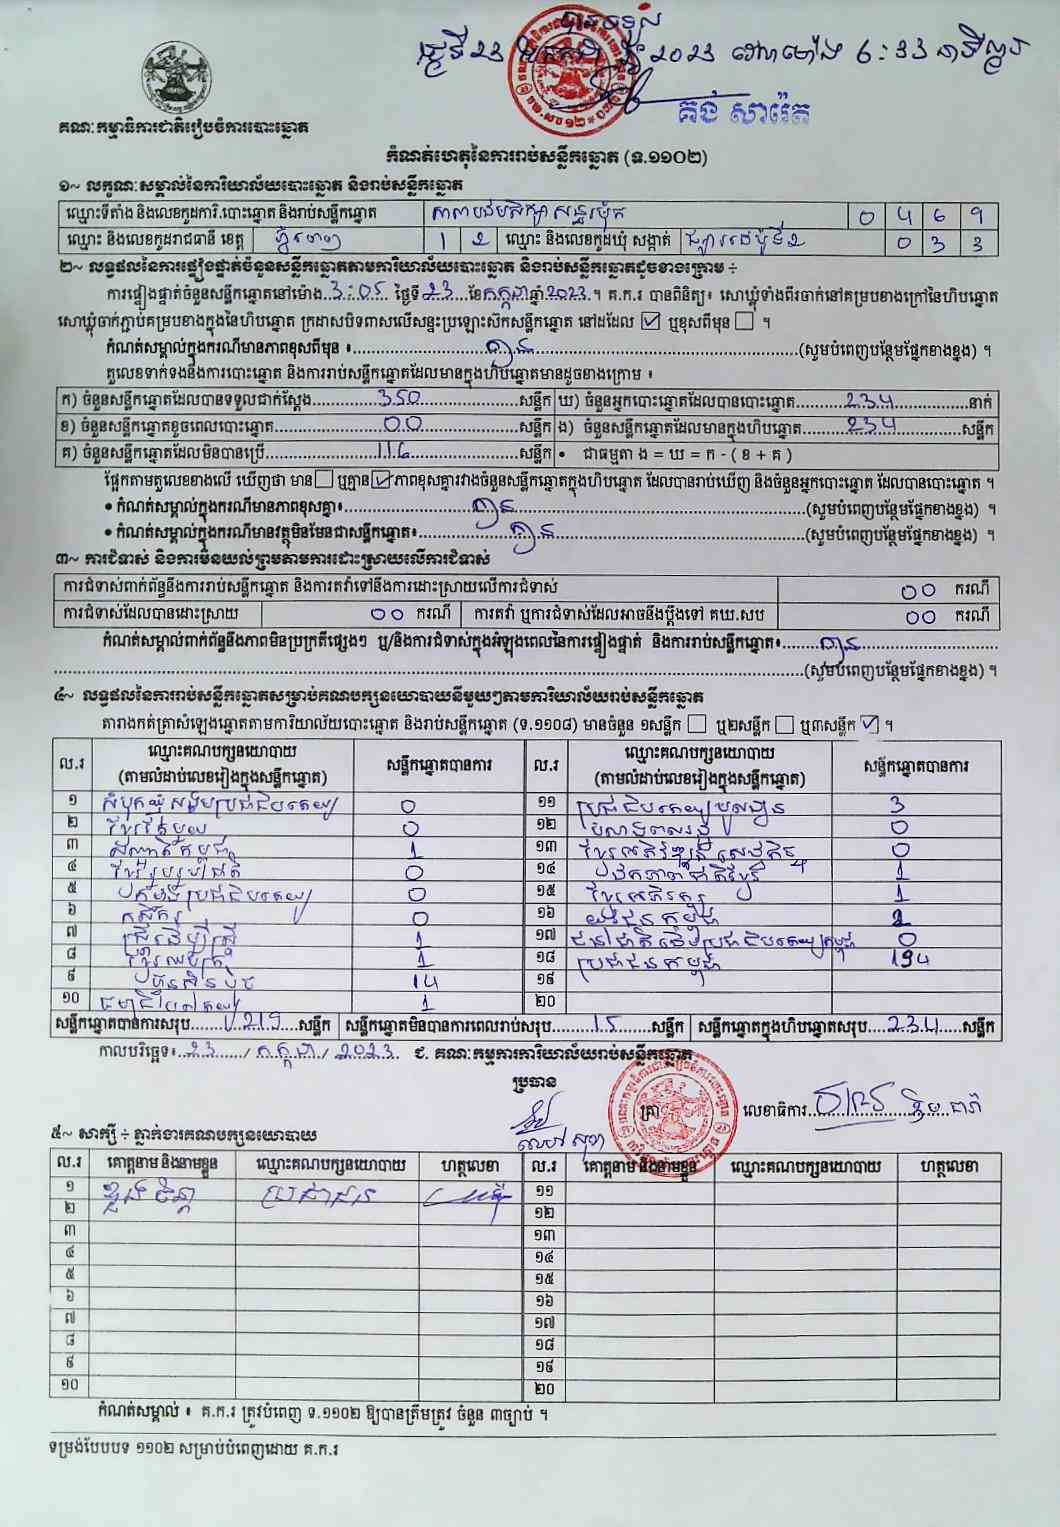 បានទទួល
ថ្ងៃទី២៣ ខែកក្កដា ឆ្នាំ ២០២៣ វេលាម៉ោង ៦:៣៣ នាទីល្ងាច
គង់ សាវ៉េត
គណៈកម្មាធិការជាតិរៀបចំការបោះឆ្នោត
កំណត់ហេតុនៃការរាប់សន្លឹកឆ្នោត (ទ.១១០២)
១~ លក្ខណៈសម្គាល់នៃការិយាល័យបោះឆ្នោត និងរាប់សន្លឹកឆ្នោត
ឈ្មោះទីតាំង និងលេខកូដការិ.បោះឆ្នោត និងរាប់សន្លឹកឆ្នោត 0 4 6 9
ឈ្មោះ និងលេខកូដរាជធានី ខេត្ត ភ្នំពេញ 1 2 ឈ្មោះ និងលេខកូដឃុំ សង្កាត់ ផ្សារដេប៉ូទី2 0 3 3
២~ លទ្ធផលនៃការផ្ទៀងផ្ទាត់ចំនួនសន្លឹកឆ្នោតតាមការិយាល័យបោះឆ្នោត និងរាប់សន្លឹកឆ្នោតដូចខាងក្រោម ÷
ការផ្ទៀងផ្ទាត់ចំនួនសន្លឹកឆ្នោតនៅម៉ោង 3:05 ថ្ងៃទី 23 ខែកក្កដា ឆ្នាំ 2023 ។ គ.ក.រ បានពិនិត្យ៖ សោឃ្លុំទាំងពីរចាក់នៅគម្របខាងក្រៅនៃហិបឆ្នោត
សោឃ្លុំចាក់ភ្ជាប់គម្របខាងក្នុងនៃហិបឆ្នោត ក្រដាសបិទពាសលើសន្ទះប្រឡោះស៊កសន្លឹកឆ្នោត នៅដដែល ☑ ឬខុសពីមុន ☐ ។
កំណត់សម្គាល់ក្នុងករណីមានភាពខុសពីមុន ៖ គ្មាន (សូមបំពេញបន្ថែមផ្នែកខាងខ្នង) ។
តួលេខទាក់ទងនឹងការបោះឆ្នោត និងការរាប់សន្លឹកឆ្នោតដែលមានក្នុងហិបឆ្នោតមានដូចខាងក្រោម ៖
ក) ចំនួនសន្លឹកឆ្នោតដែលបានទទួលជាក់ស្តែង 350 សន្លឹក ឃ) ចំនួនអ្នកបោះឆ្នោតដែលបានបោះឆ្នោត 234 នាក់
ខ) ចំនួនសន្លឹកឆ្នោតខូចពេលបោះឆ្នោត 00 សន្លឹក ង) ចំនួនសន្លឹកឆ្នោតដែលមានក្នុងហិបឆ្នោត 234 សន្លឹក
គ) ចំនួនសន្លឹកឆ្នោតដែលមិនបានប្រើ 116 សន្លឹក • ជាធម្មតា ង = ឃ = ក - ( ខ + គ )
ផ្អែកតាមតួលេខខាងលើ ឃើញថា មាន ☐ ឬគ្មាន ☑ ភាពខុសគ្នារវាងចំនួនសន្លឹកឆ្នោតក្នុងហិបឆ្នោត ដែលបានរាប់ឃើញ និងចំនួនអ្នកបោះឆ្នោត ដែលបានបោះឆ្នោត ។
• កំណត់សម្គាល់ក្នុងករណីមានភាពខុសគ្នា៖ គ្មាន (សូមបំពេញបន្ថែមផ្នែកខាងខ្នង) ។
• កំណត់សម្គាល់ក្នុងករណីមានវត្ថុមិនមែនជាសន្លឹកឆ្នោត៖ គ្មាន (សូមបំពេញបន្ថែមផ្នែកខាងខ្នង) ។
៣~ ការជំទាស់ និងការមិនយល់ព្រមតាមការដោះស្រាយលើការជំទាស់
ការជំទាស់ពាក់ព័ន្ធនឹងការរាប់សន្លឹកឆ្នោត និងការតវ៉ាទៅនឹងការដោះស្រាយលើការជំទាស់ 00 ករណី
ការជំទាស់ដែលបានដោះស្រាយ 00 ករណី ការតវ៉ា ឬការជំទាស់ដែលអាចនឹងប្តឹងទៅ គឃ.សប 00 ករណី
កំណត់សម្គាល់ពាក់ព័ន្ធនឹងភាពមិនប្រក្រតីផ្សេងៗ ឬ/និងការជំទាស់ក្នុងអំឡុងពេលនៃការផ្ទៀងផ្ទាត់ និងការរាប់សន្លឹកឆ្នោត៖ គ្មាន
(សូមបំពេញបន្ថែមផ្នែកខាងខ្នង) ។
៤~ លទ្ធផលនៃការរាប់សន្លឹកឆ្នោតសម្រាប់គណបក្សនយោបាយនីមួយៗតាមការិយាល័យរាប់សន្លឹកឆ្នោត
តារាងកត់ត្រាសំឡេងឆ្នោតតាមការិយាល័យបោះឆ្នោត និងរាប់សន្លឹកឆ្នោត (ទ.១១០៨) មានចំនួន ១សន្លឹក ☐ ឬ២សន្លឹក ☐ ឬ៣សន្លឹក ☑ ។
ល.រ ឈ្មោះគណបក្សនយោបាយ (តាមលំដាប់លេខរៀងក្នុងសន្លឹកឆ្នោត) សន្លឹកឆ្នោតបានការ ល.រ ឈ្មោះគណបក្សនយោបាយ (តាមលំដាប់លេខរៀងក្នុងសន្លឹកឆ្នោត) សន្លឹកឆ្នោតបានការ
១ សំបុកឃ្មុំសង្គមប្រជាធិបតេយ្យ 0 ១១ ប្រជាធិបតេយ្យមូលដ្ឋាន 3
២ ខ្មែរតែមួយ 0 ១២
៣ សញ្ជាតិកម្ពុជា 1 ១៣ ខ្មែរអភិវឌ្ឍន៍សេដ្ឋកិច្ច 0
៤ ខ្មែររួបរួមជាតិ 0 ១៤ ឯកភាពជាតិខ្មែរ 1
៥ កម្លាំងប្រជាធិបតេយ្យ 0 ១៥ ខ្មែរអភិរក្ស 1
៦ កសិករ 0 ១៦ យុវជនកម្ពុជា 2
៧ ស្ត្រីដើម្បីស្ត្រី 1 ១៧ ជនជាតិដើមប្រជាធិបតេយ្យកម្ពុជា 0
៨ 1 ១៨ ប្រជាជនកម្ពុជា 194
៩ ហ្វ៊ុនស៊ិនប៉ិច 14 ១៩
១០ ធម្មាធិបតេយ្យ 1 ២០
សន្លឹកឆ្នោតបានការសរុប 219 សន្លឹក សន្លឹកឆ្នោតមិនបានការពេលរាប់សរុប 15 សន្លឹក សន្លឹកឆ្នោតក្នុងហិបឆ្នោតសរុប 234 សន្លឹក
កាលបរិច្ឆេទ៖ 23 / កក្កដា / 2023 ជ. គណៈកម្មការការិយាល័យរាប់សន្លឹកឆ្នោត
ប្រធាន
ត្រា លេខាធិការ
៥~ សាក្សី ÷ ភ្នាក់ងារគណបក្សនយោបាយ
ល.រ គោត្តនាម និងនាមខ្លួន ឈ្មោះគណបក្សនយោបាយ ហត្ថលេខា ល.រ គោត្តនាម និងនាមខ្លួន ឈ្មោះគណបក្សនយោបាយ ហត្ថលេខា
១ ប្រជាជន ១១
២ ១២
៣ ១៣
៤ ១៤
៥ ១៥
៦ ១៦
៧ ១៧
៨ ១៨
៩ ១៩
១០ ២០
កំណត់សម្គាល់ ៖ គ.ក.រ ត្រូវបំពេញ ទ.១១០២ ឱ្យបានត្រឹមត្រូវ ចំនួន ៣ច្បាប់ ។
ទម្រង់បែបបទ ១១០២ សម្រាប់បំពេញដោយ គ.ក.រ